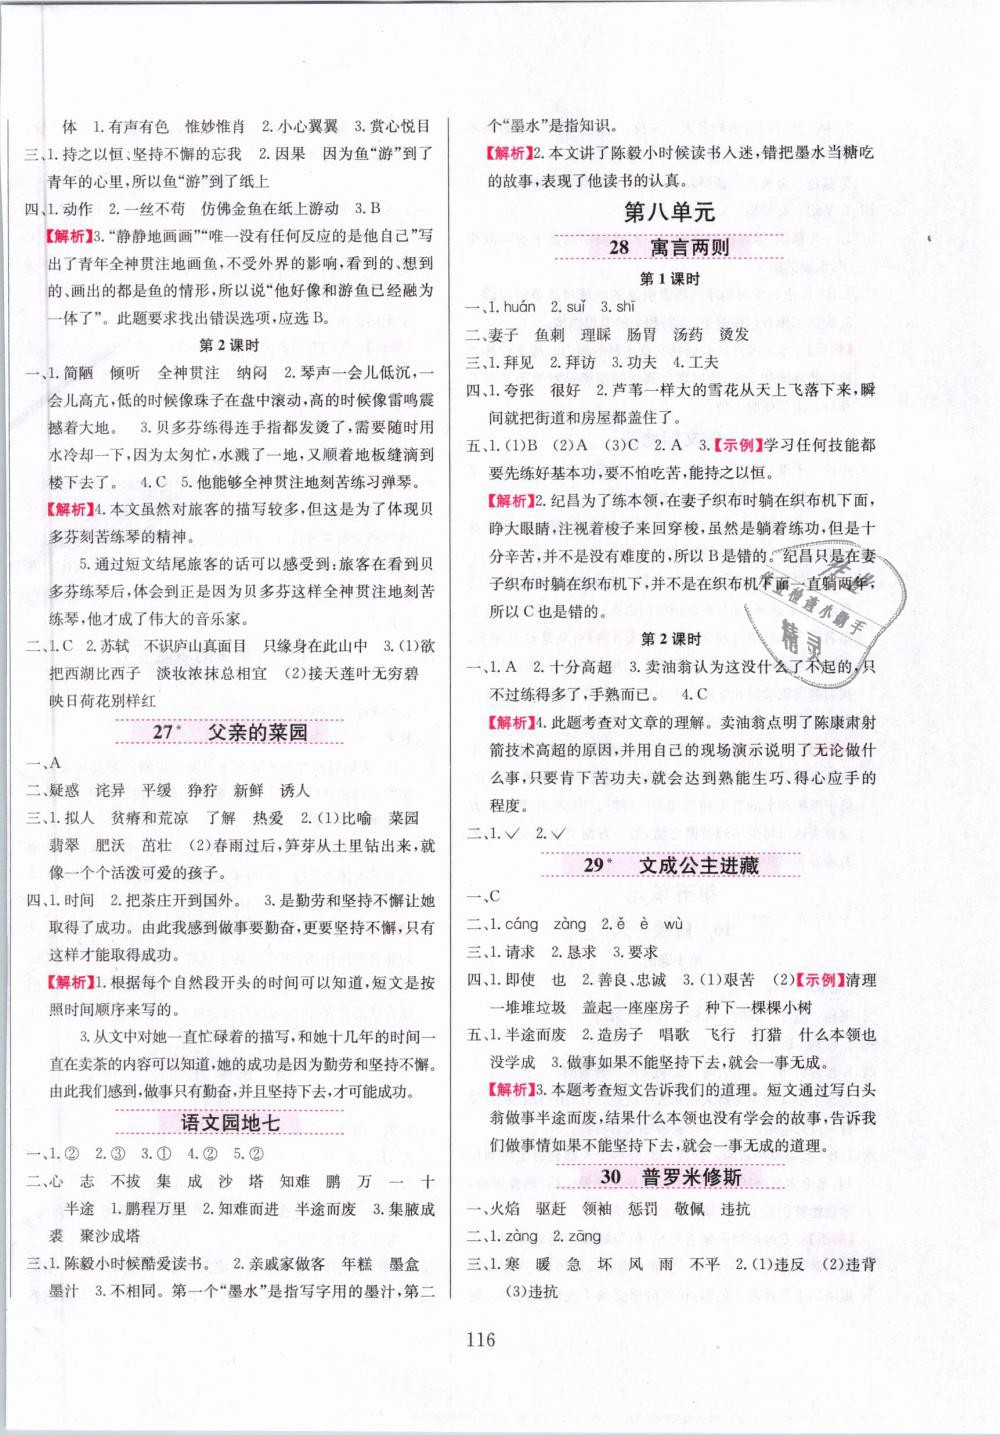 体　1.有声有色　惟妙惟肖　2.小心翼翼　3.赏心悦目
三、1.持之以恒、坚持不懈的忘我　2.因果　因为鱼“游”到了
青年的心里,所以鱼“游”到了纸上
四、1.动作　2.一丝不苟　仿佛金鱼在纸上游动　3.B
【解析】3.“静静地画画”“唯一没有任何反应的是他自己”写
出了青年全神贯注地画鱼,不受外界的影响,看到的、想到
的、画出的都是鱼的情形,所以说“他好像和游鱼已经融为
一体了”。此题要求找出错误选项,应选B。
第2课时
一、1.简陋　倾听　全神贯注　纳闷　2.琴声一会儿低沉,一
会儿高亢,低的时候像珠子在盘中滚动,高的时候像雷鸣震
撼着大地。　3.贝多芬练得连手指都发烫了,需要随时用
水冷却一下;因为太匆忙,水溅了一地,又顺着地板缝滴到
楼下去了。　4.C　5.他能够全神贯注地刻苦练习弹琴。
【解析】4.本文虽然对旅客的描写较多,但这是为了体现贝
多芬刻苦练琴的精神。
5.通过短文结尾旅客的话可以感受到:旅客在看到贝
多芬练琴后,体会到正是因为贝多芬这样全神贯注地刻苦
练琴,他才成了伟大的音乐家。
二、1.C　2.苏轼　不识庐山真面目　只缘身在此山中　(1)欲
把西湖比西子　淡妆浓抹总相宜　(2)接天莲叶无穷碧
映日荷花别样红
27*　父亲的菜园
一、A
二、疑惑　诧异　平缓　狰狞　新鲜　诱人
三、1.拟人　贫瘠和荒凉　了解　热爱　2.(1)比喻　菜园
翡翠　肥沃　茁壮　(2)春雨过后,笋芽从土里钻出来,就
像一个个活泼可爱的孩子。
四、1.时间　2.把茶庄开到国外。　3.是勤劳和坚持不懈让她
取得了成功。由此我感到做事要勤奋,更要坚持不懈,只有
这样才能取得成功。
【解析】1.根据每个自然段开头的时间可以知道,短文是按
照时间顺序来写的。
3.从文中对她一直忙碌着的描写,和她十几年的时间一
直在卖茶的内容可以知道,她的成功是因为勤劳和坚持不懈。
由此我们感到,做事只有勤奋,并且坚持下去,才可能成功。
语文园地七
一、1.②　2.③　3.①　4.②　5.②
二、心　志　不拔　集　成　沙　塔　知难　鹏　万　一　十
半途　1.鹏程万里　2.知难而进　半途而废　3.集腋成
裘　聚沙成塔
三、1.陈毅小时候酷爱读书。　2.亲戚家做客　年糕　墨盒
墨汁　3.不相同。第一个“墨水”是指写字用的墨汁,第二
个“墨水”是指知识。
【解析】2.本文讲了陈毅小时候读书入迷,错把墨水当糖吃
的故事,表现了他读书的认真。
第八单元
28　寓言两则
第1课时
一、1.huán　2.suī　3.shī
二、妻子　鱼刺　理睬　肠胃　汤药　烫发
三、1.拜见　2.拜访　3.功夫　4.工夫
四、1.夸张　很好　2.芦苇一样大的雪花从天上飞落下来,瞬
间就把街道和房屋都盖住了。
五、1.(1)B　(2)A　(3)C　2.A　3.【示例】学习任何技能都
要先练好基本功,要不怕吃苦,能持之以恒。
【解析】2.纪昌为了练本领,在妻子织布时躺在织布机下面,
睁大眼睛,注视着梭子来回穿梭,虽然是躺着练功,但是十
分辛苦,并不是没有难度的,所以B是错的。纪昌只是在妻
子织布时躺在织布机下,并不是在织布机下面一直躺两年,
所以C也是错的。
第2课时
一、1.A　2.十分高超　3.卖油翁认为这没什么了不起的,只
不过练得多了,手熟而已。　4.C
【解析】4.此题考查对文章的理解。卖油翁点明了陈康肃射
箭技术高超的原因,并用自己的现场演示说明了无论做什
么事,只要肯下苦功夫,就会达到熟能生巧、得心应手的
程度。
二、1.✓　2.✓
29*　文成公主进藏
一、C
二、1.cáng　zàng　2.ě　è　wù
三、1.请求　2.恳求　3.要求
四、1.即使　也　2.善良、忠诚　3.(1)艰苦　(2)【示例】清理
一堆堆垃圾　盖起一座座房子　种下一棵棵小树
五、1.半途而废　2.造房子　唱歌　飞行　打猎　什么本领也
没学成　3.做事如果不能坚持下去,就会一事无成。
【解析】3.本题考查短文告诉我们的道理。短文通过写白头
翁做事半途而废,结果什么本领也没有学会的故事,告诉我
们做事情如果不能坚持下去,就会一事无成的道理。
30　普罗米修斯
一、火焰　驱赶　领袖　惩罚　敬佩　违抗
二、1.zàng　2.zāng
三、1.寒　暖　急　坏　风　雨　不　平　2.(1)违反　(2)违背
(3)违抗
作业
作业检查小助手
精灵
116